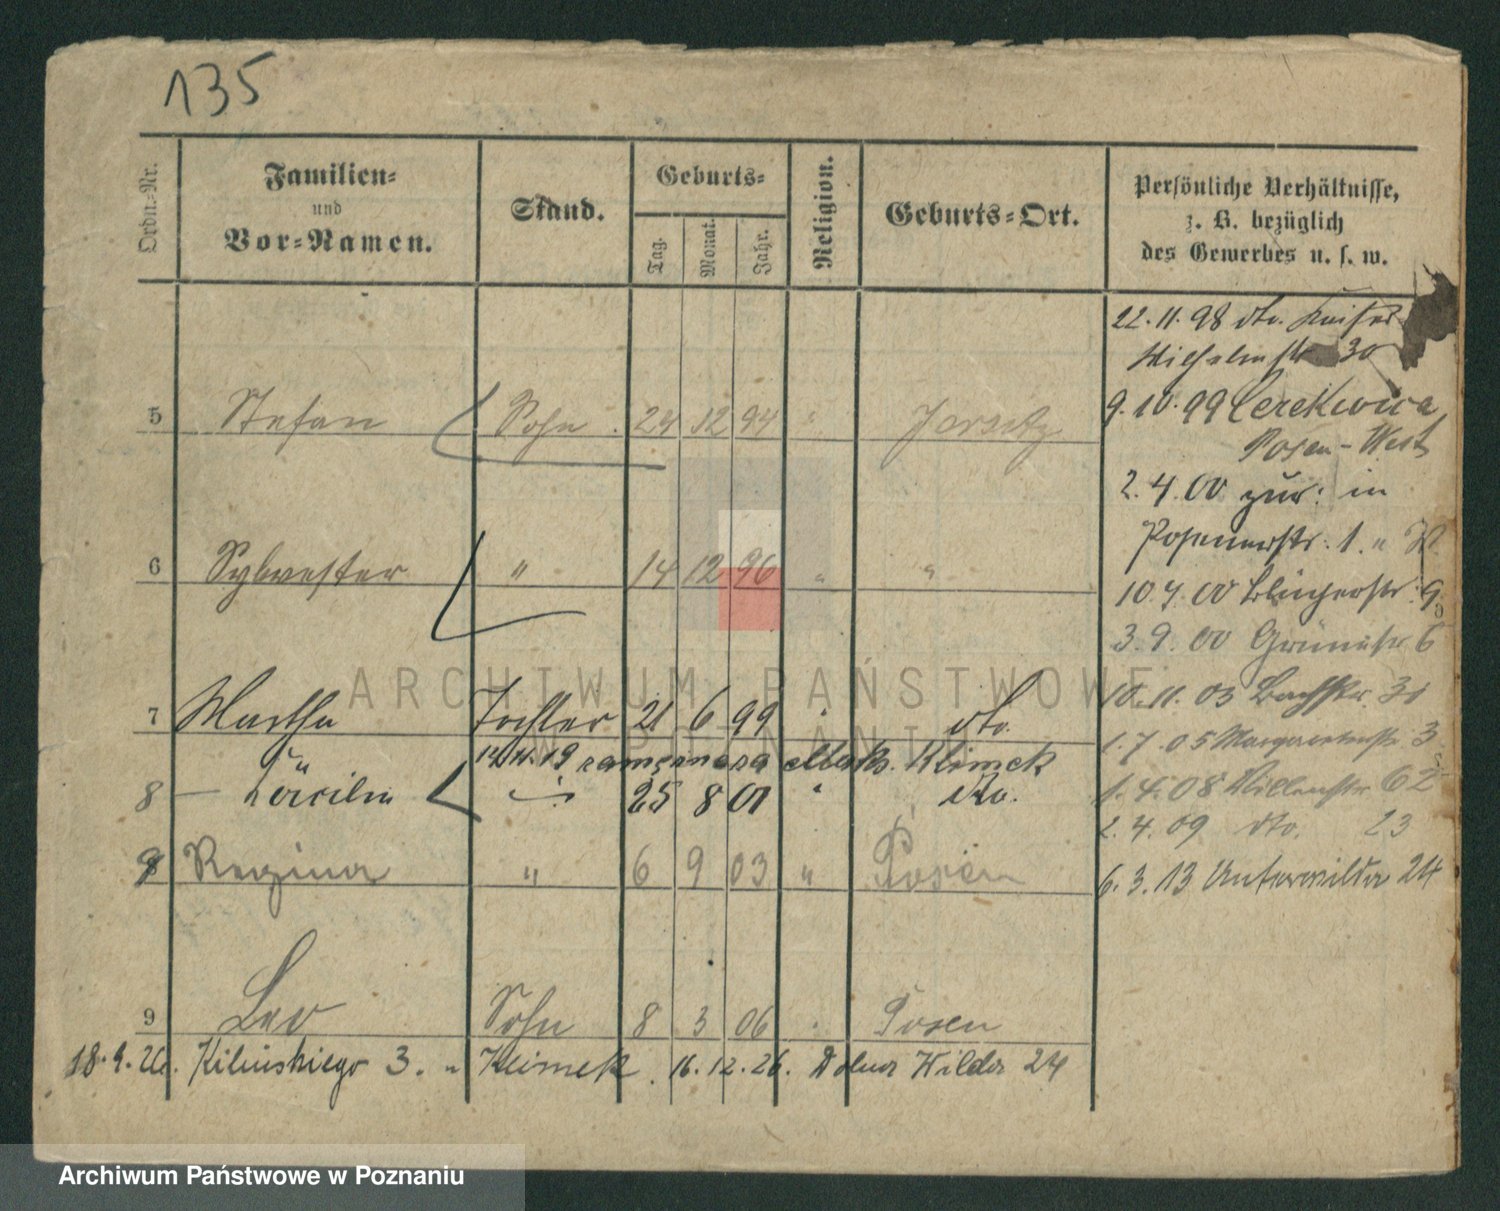 135
Ordn.-Nr.
Familien-
und
Vor-Namen.
Stand.
Geburts-
Tag.
Monat.
Jahr.
Religion.
Geburts-Ort.
Persönliche Verhältnisse,
z. B. bezüglich
des Gewerbes u. s. w.
22.11.98 dto. Kaiser
Wilhelmstr 30
9.10.99 Cerekwica
Posen-West
2.4.00 zur: in
Posenerstr. 1. "
10 7.00 9
3.9.00 Grünestr 6
10.11.03 Bachstr. 31
1.7.05 Margaretenstr. 3
1.4.08 62
2.4.09 dto. 23
6.3.13 Unterwilda 24
5 Stefan Sohn 24 12 94 " Jersitz
6 Sylvester " 14 12 96 " "
7 Martha Tochter 21 6 99 " dto.
19 zamężna Klimek
8 Cäcilia 25 8 01 " dto.
9 Regina " 6 9 03 " Posen
9 Leo Sohn 8 3 06 " Posen
18.9.26. Kilińskiego 3. " Klimek. 16.12.26. Dolna Wilda 24
ARCHIWUM PAŃSTWOWE
W POZNANIU
Archiwum Państwowe w Poznaniu